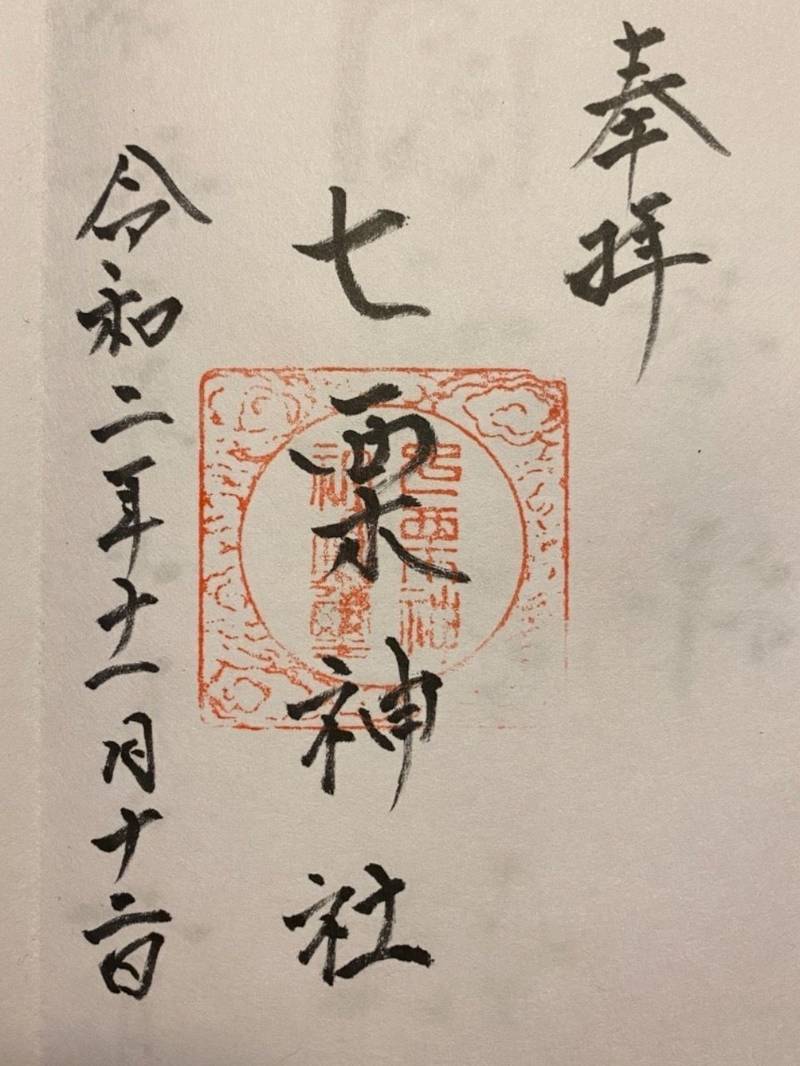 奉拝
七栗神社
令和二年十一月十二日